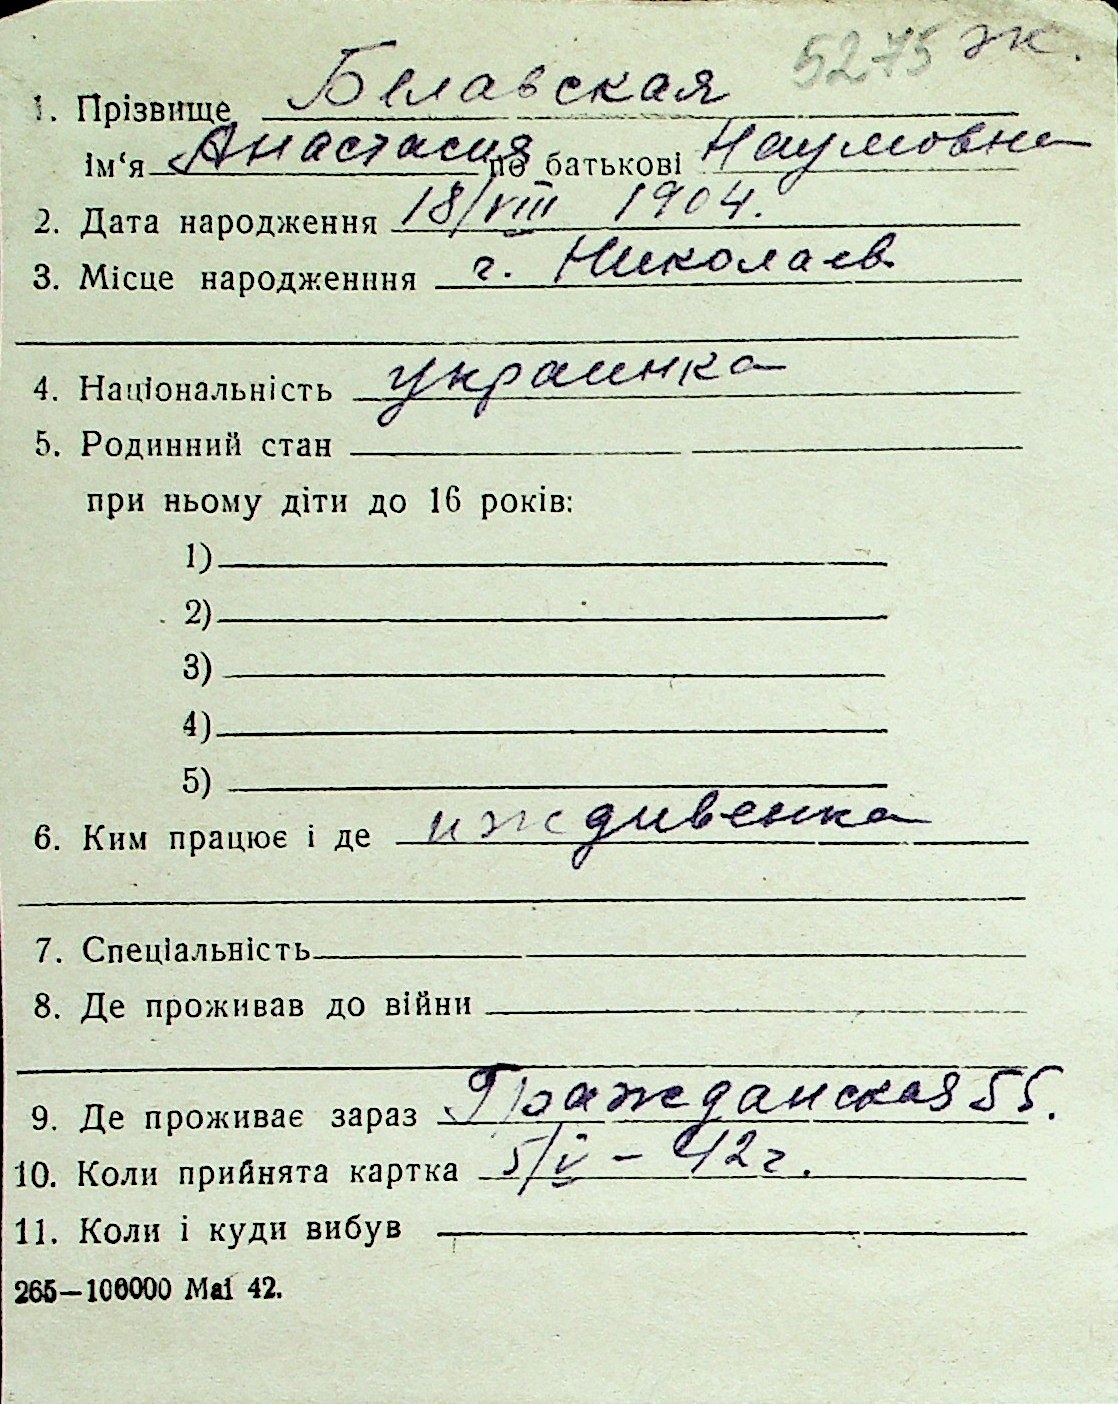 5275 ж.
1. Прізвище Белавская
ім‘я Анастасия по батькові Наумовна
2. Дата народження 18/VIII 1904.
3. Місце народженння г. Николаев
4. Національність украинка
5. Родинний стан
при ньому діти до 16 років:
1)
2)
3)
4)
5)
6. Ким працює і де иждивенка
7. Спеціальність
8. Де проживав до війни
9. Де проживає зараз Гражданская 55.
10. Коли прийнята картка 5/V – 42 г.
11. Коли і куди вибув
265—100000 Маі 42.